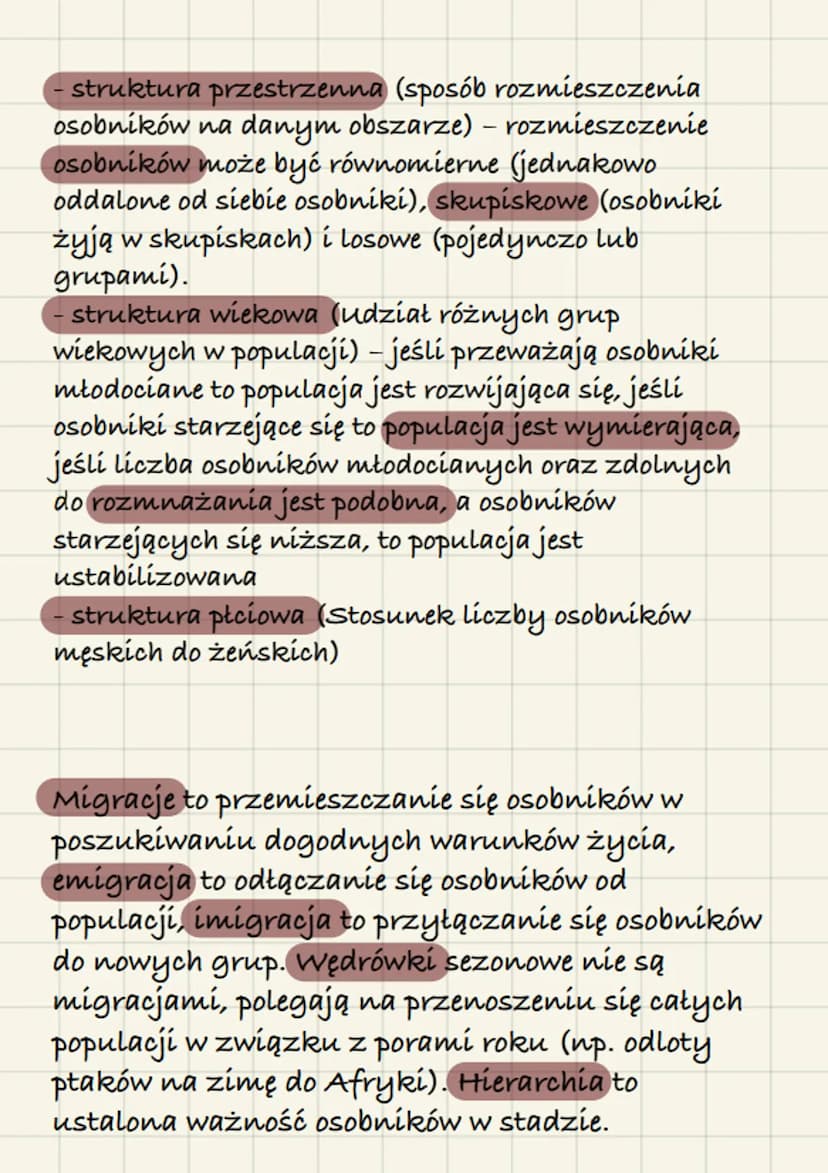 - struktura przestrzenna (sposób rozmieszczenia
osobników na danym obszarze) – rozmieszczenie
osobników może być równomierne (jednakowo
oddalone od siebie osobniki), skupiskowe (osobniki
żyją w skupiskach) i losowe (pojedynczo lub
grupami).
- struktura wiekowa (Udział różnych grup
wiekowych w populacji) – jeśli przeważają osobniki
młodociane to populacja jest rozwijająca się, jeśli
osobniki starzejące się to populacja jest wymierająca,
jeśli liczba osobników młodocianych oraz zdolnych
do rozmnażania jest podobna, a osobników
starzejących się niższa, to populacja jest
ustabilizowana
- struktura płciowa (Stosunek liczby osobników
męskich do żeńskich)
Migracje to przemieszczanie się osobników w
poszukiwaniu dogodnych warunków życia,
emigracja to odłączanie się osobników od
populacji, imigracja to przyłączanie się osobników
do nowych grup. Wędrówki sezonowe nie są
migracjami, polegają na przenoszeniu się całych
populacji w związku z porami roku (np. odloty
ptaków na zimę do Afryki). Hierarchia to
ustalona ważność osobników w stadzie.